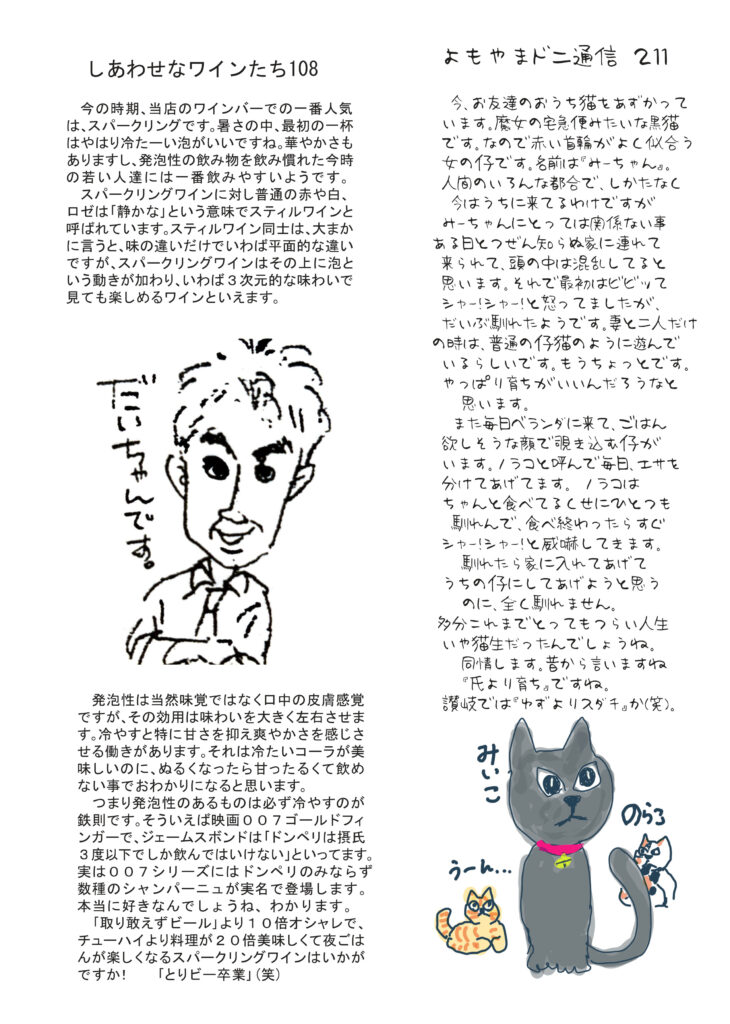 しあわせなワインたち108
今の時期、当店のワインバーでの一番人気
は、スパークリングです。暑さの中、最初の一杯
はやはり冷たーい泡がいいですね。華やかさも
ありますし、発泡性の飲み物を飲み慣れた今時
の若い人達には一番飲みやすいようです。
スパークリングワインに対し普通の赤や白、
ロゼは「静かな」という意味でスティルワインと
呼ばれています。スティルワイン同士は、大まか
に言うと、味の違いだけでいわば平面的な違い
ですが、スパークリングワインはその上に泡と
いう動きが加わり、いわば３次元的な味わいで
見ても楽しめるワインといえます。
だいちゃんです。
発泡性は当然味覚ではなく口中の皮膚感覚
ですが、その効用は味わいを大きく左右させま
す。冷やすと特に甘さを抑え爽やかさを感じさ
せる働きがあります。それは冷たいコーラが美
味しいのに、ぬるくなったら甘ったるくて飲め
ない事でおわかりになると思います。
つまり発泡性のあるものは必ず冷やすのが
鉄則です。そういえば映画００７ゴールドフィ
ンガーで、ジェームスボンドは「ドンペリは摂氏
３度以下でしか飲んではいけない」といってます。
実は００７シリーズにはドンペリのみならず
数種のシャンパーニュが実名で登場します。
本当に好きなんでしょうね、わかります。
「取り敢えずビール」より１０倍オシャレで、
チューハイより料理が２０倍美味しくて夜ごは
んが楽しくなるスパークリングワインはいかが
ですか！　「とりビー卒業」（笑）
よもやまドニ通信 211
今、お友達のおうち猫をあずかって
います。魔女の宅急便みたいな黒猫
です。なので赤い首輪がよく似合う
女の仔です。名前は『みーちゃん』。
人間のいろんな都合で、しかたなく
今はうちに来てるわけですが
みーちゃんにとっては関係ない事
ある日とつぜん知らぬ家に連れて
来られて、頭の中は混乱してると
思います。それで最初はビビッて
シャー！シャー！と怒ってましたが、
だいぶ馴れたようです。妻と二人だけ
の時は、普通の仔猫のように遊んで
いるらしいです。もうちょっとです。
やっぱり育ちがいいんだろうなと
思います。
また毎日ベランダに来て、ごはん
欲しそうな顔で覗き込む仔が
います。ノラコと呼んで毎日、エサを
分けてあげてます。ノラコは
ちゃんと食べてるくせにひとつも
馴れんで、食べ終わったらすぐ
シャー！シャー！と威嚇してきます。
馴れたら家に入れてあげて
うちの仔にしてあげようと思う
のに、全く馴れません。
多分これまでとってもつらい人生
いや猫生だったんでしょうね。
同情します。昔から言いますね
『氏より育ち』ですね。
讃岐では『ゆずよりスダチ』か（笑）。
みいこ
のらろ
うーん…